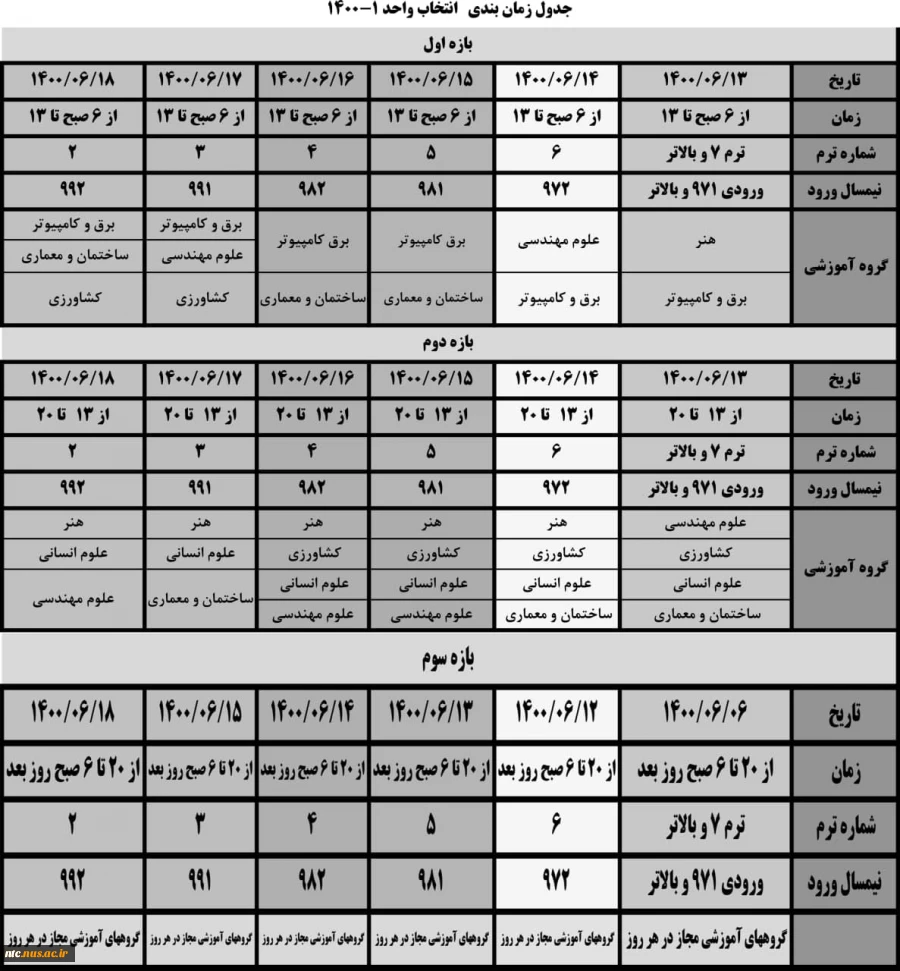 جدول زمان بندی انتخاب واحد ۱-۱۴۰۰
بازه اول
تاریخ ۱۴۰۰/۰۶/۱۳ ۱۴۰۰/۰۶/۱۴ ۱۴۰۰/۰۶/۱۵ ۱۴۰۰/۰۶/۱۶ ۱۴۰۰/۰۶/۱۷ ۱۴۰۰/۰۶/۱۸
زمان از ۶ صبح تا ۱۳ از ۶ صبح تا ۱۳ از ۶ صبح تا ۱۳ از ۶ صبح تا ۱۳ از ۶ صبح تا ۱۳ از ۶ صبح تا ۱۳
شماره ترم ترم ۷ و بالاتر ۶ ۵ ۴ ۳ ۲
نیمسال ورود ورودی ۹۷۱ و بالاتر ۹۷۲ ۹۸۱ ۹۸۲ ۹۹۱ ۹۹۲
گروه آموزشی هنر علوم مهندسی برق کامپیوتر برق کامپیوتر برق و کامپیوتر برق و کامپیوتر
علوم مهندسی ساختمان و معماری
برق و کامپیوتر برق و کامپیوتر ساختمان و معماری ساختمان و معماری کشاورزی کشاورزی
بازه دوم
تاریخ ۱۴۰۰/۰۶/۱۳ ۱۴۰۰/۰۶/۱۴ ۱۴۰۰/۰۶/۱۵ ۱۴۰۰/۰۶/۱۶ ۱۴۰۰/۰۶/۱۷ ۱۴۰۰/۰۶/۱۸
زمان از ۱۳ تا ۲۰ از ۱۳ تا ۲۰ از ۱۳ تا ۲۰ از ۱۳ تا ۲۰ از ۱۳ تا ۲۰ از ۱۳ تا ۲۰
شماره ترم ترم ۷ و بالاتر ۶ ۵ ۴ ۳ ۲
نیمسال ورود ورودی ۹۷۱ و بالاتر ۹۷۲ ۹۸۱ ۹۸۲ ۹۹۱ ۹۹۲
گروه آموزشی علوم مهندسی هنر هنر هنر هنر هنر
کشاورزی کشاورزی کشاورزی کشاورزی علوم انسانی علوم انسانی
علوم انسانی علوم انسانی علوم انسانی علوم انسانی ساختمان و معماری علوم مهندسی
ساختمان و معماری ساختمان و معماری علوم مهندسی علوم مهندسی
بازه سوم
تاریخ ۱۴۰۰/۰۶/۰۶ ۱۴۰۰/۰۶/۱۲ ۱۴۰۰/۰۶/۱۳ ۱۴۰۰/۰۶/۱۴ ۱۴۰۰/۰۶/۱۵ ۱۴۰۰/۰۶/۱۸
زمان از ۲۰ تا ۶ صبح روز بعد از ۲۰ تا ۶ صبح روز بعد از ۲۰ تا ۶ صبح روز بعد از ۲۰ تا ۶ صبح روز بعد از ۲۰ تا ۶ صبح روز بعد از ۲۰ تا ۶ صبح روز بعد
شماره ترم ترم ۷ و بالاتر ۶ ۵ ۴ ۳ ۲
نیمسال ورود ورودی ۹۷۱ و بالاتر ۹۷۲ ۹۸۱ ۹۸۲ ۹۹۱ ۹۹۲
گروههای آموزشی مجاز در هر روز گروههای آموزشی مجاز در هر روز گروههای آموزشی مجاز در هر روز گروههای آموزشی مجاز در هر روز گروههای آموزشی مجاز در هر روز گروههای آموزشی مجاز در هر روز
ntc.nus.ac.ir